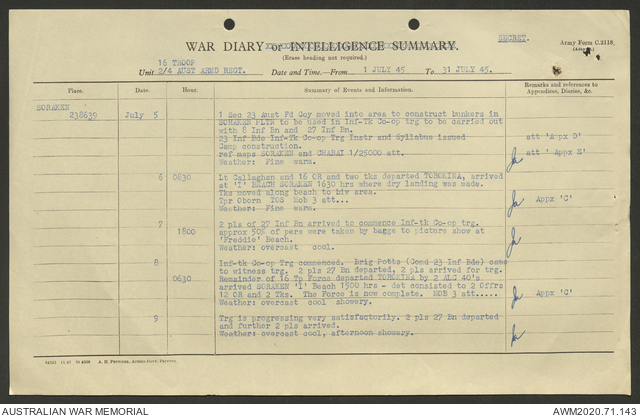 SECRET.
WAR DIARY or INTELLIGENCE SUMMARY.
Army Form C.2118.
(Erase heading not required.)
16 TROOP
Unit 2/4 AUST ARMD REGT. Date and Time—From 1 JULY 45 To 31 JULY 45.
Place. Date. Hour Summary of Events and Information. Remarks and references to Appendices, Diaries, &c.
SORAKEN
238639 July 5 1 Sec 23 Aust Fd Coy moved into area to construct bunkers in
SORAKEN PLTN to be used in Inf-Tk Co-op trg to be carried out
with 8 Inf Bn and 27 Inf Bn.
23 Inf Bde Inf-Tk Co-op Trg Instr and Syllabus issued att 'Appx D'
Camp construction.
ref maps SORAKEN and CHABAI 1/25000 att. att ' Appx E'
Weather: Fine warm.
6 0830 Lt Callaghan and 16 OR and two tks departed TOROKINA, arrived
at 'I' BEACH SORAKEN 1630 hrs where dry landing was made.
Tks moved along beach to biv area.
Tpr Oborn TOS Mob 3 att... Appx 'C'
Weather: Fine warm.
7 2 pls of 27 Inf Bn arrived to commence Inf-tk Co-op trg.
1800 approx 50% of pers were taken by barge to picture show at
'Freddie' Beach.
Weather: overcast cool.
8 Inf-tk Co-op Trg commenced. Brig Potts (Comd 23 Inf Bde) came
to witness trg. 2 pls 27 Bn departed, 2 pls arrived for trg.
0630 Remainder of 16 Tp Force departed TOROKINA by 2 ALC 40's
arrived SORAKEN 'I' Beach 1500 hrs - det consisted to 2 Offrs
12 OR and 2 Tks. The Force is now complete. MOB 3 att..... Appx 'C'
Weather: overcast cool showery.
9 Trg is progressing very satisfactorily. 2 pls 27 Bn departed
and further 2 pls arrived.
Weather: overcast cool, afternoon showery.
AUSTRALIAN WAR MEMORIAL
AWM2020.71.143